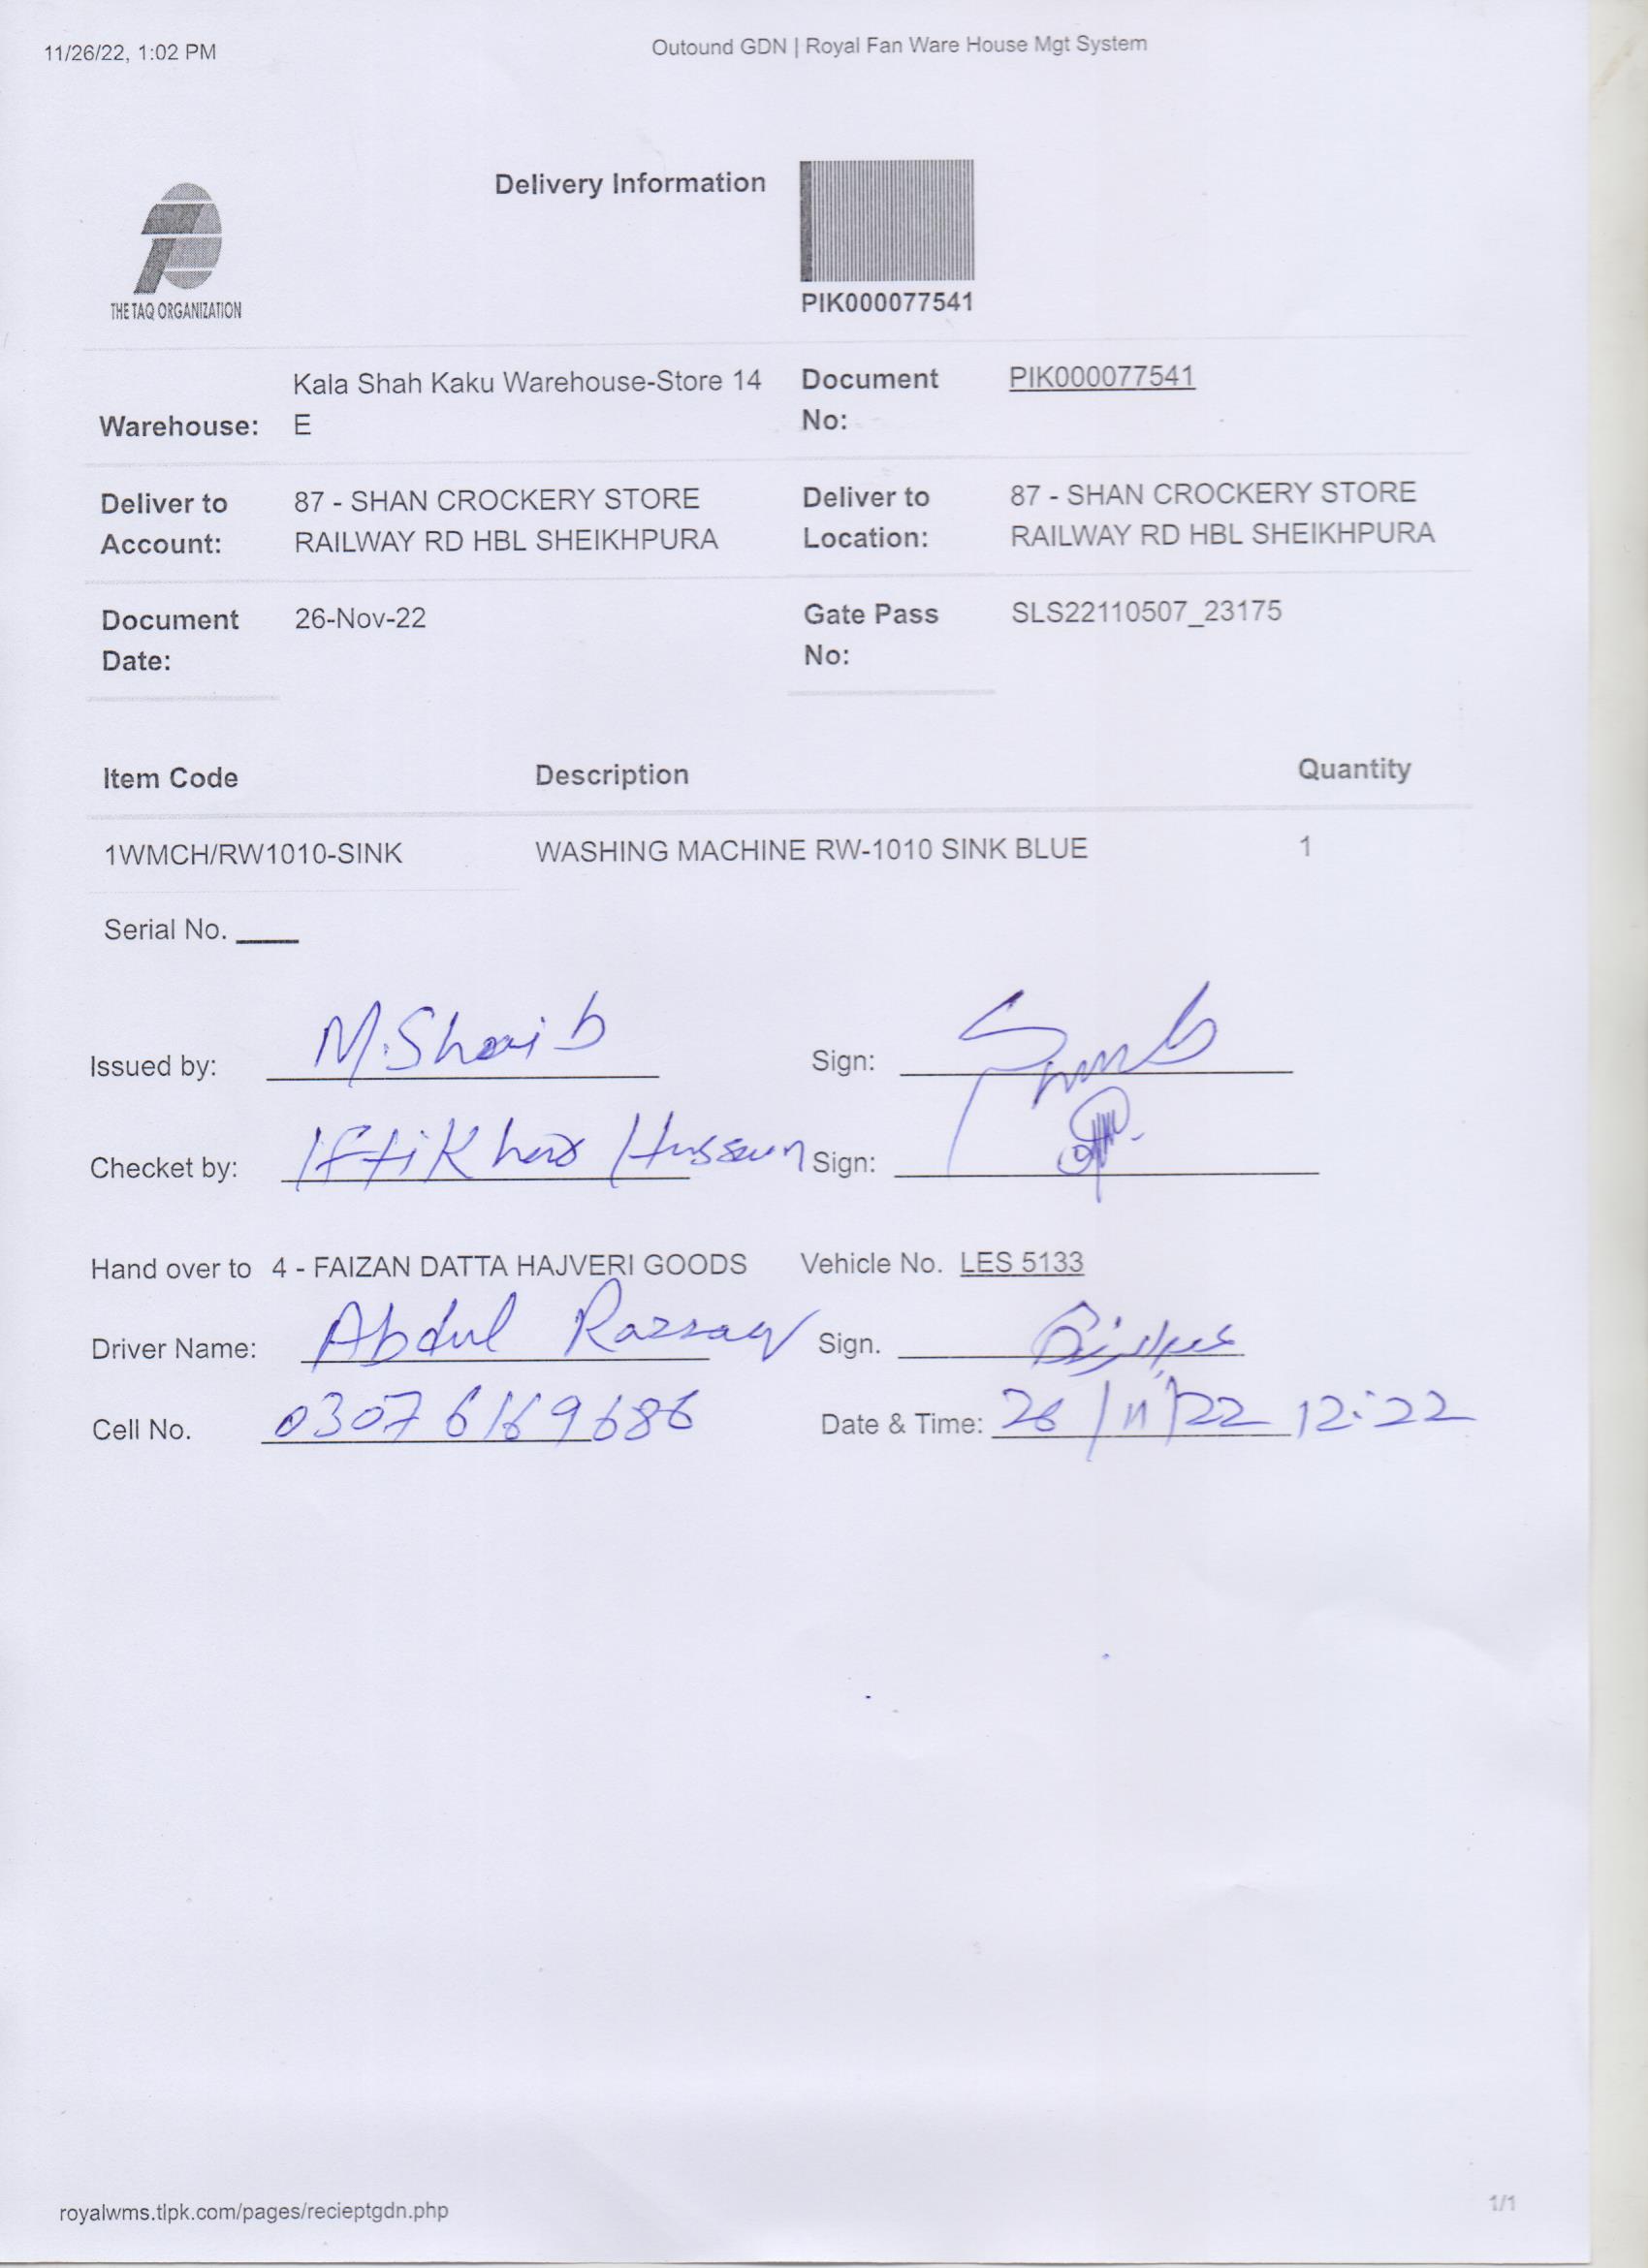 11/26/22, 1:02 PM
Outound GDN | Royal Fan Ware House Mgt System
THE TAQ ORGANIZATION
Delivery Information
PIK000077541
Warehouse: Kala Shah Kaku Warehouse-Store 14 E
Document No: PIK000077541
Deliver to Account: 87 - SHAN CROCKERY STORE RAILWAY RD HBL SHEIKHPURA
Deliver to Location: 87 - SHAN CROCKERY STORE RAILWAY RD HBL SHEIKHPURA
Document Date: 26-Nov-22
Gate Pass No: SLS22110507_23175
Item Code Description Quantity
1WMCH/RW1010-SINK WASHING MACHINE RW-1010 SINK BLUE 1
Serial No.
Issued by: M. Shoaib Sign:
Checket by: Iftikhar Hussain Sign:
Hand over to 4 - FAIZAN DATTA HAJVERI GOODS Vehicle No. LES 5133
Driver Name: Abdul Razzaq Sign. عبدالرزاق
Cell No. 0307 6169686 Date & Time: 26/11/22 12:22
royalwms.tlpk.com/pages/recieptgdn.php
1/1